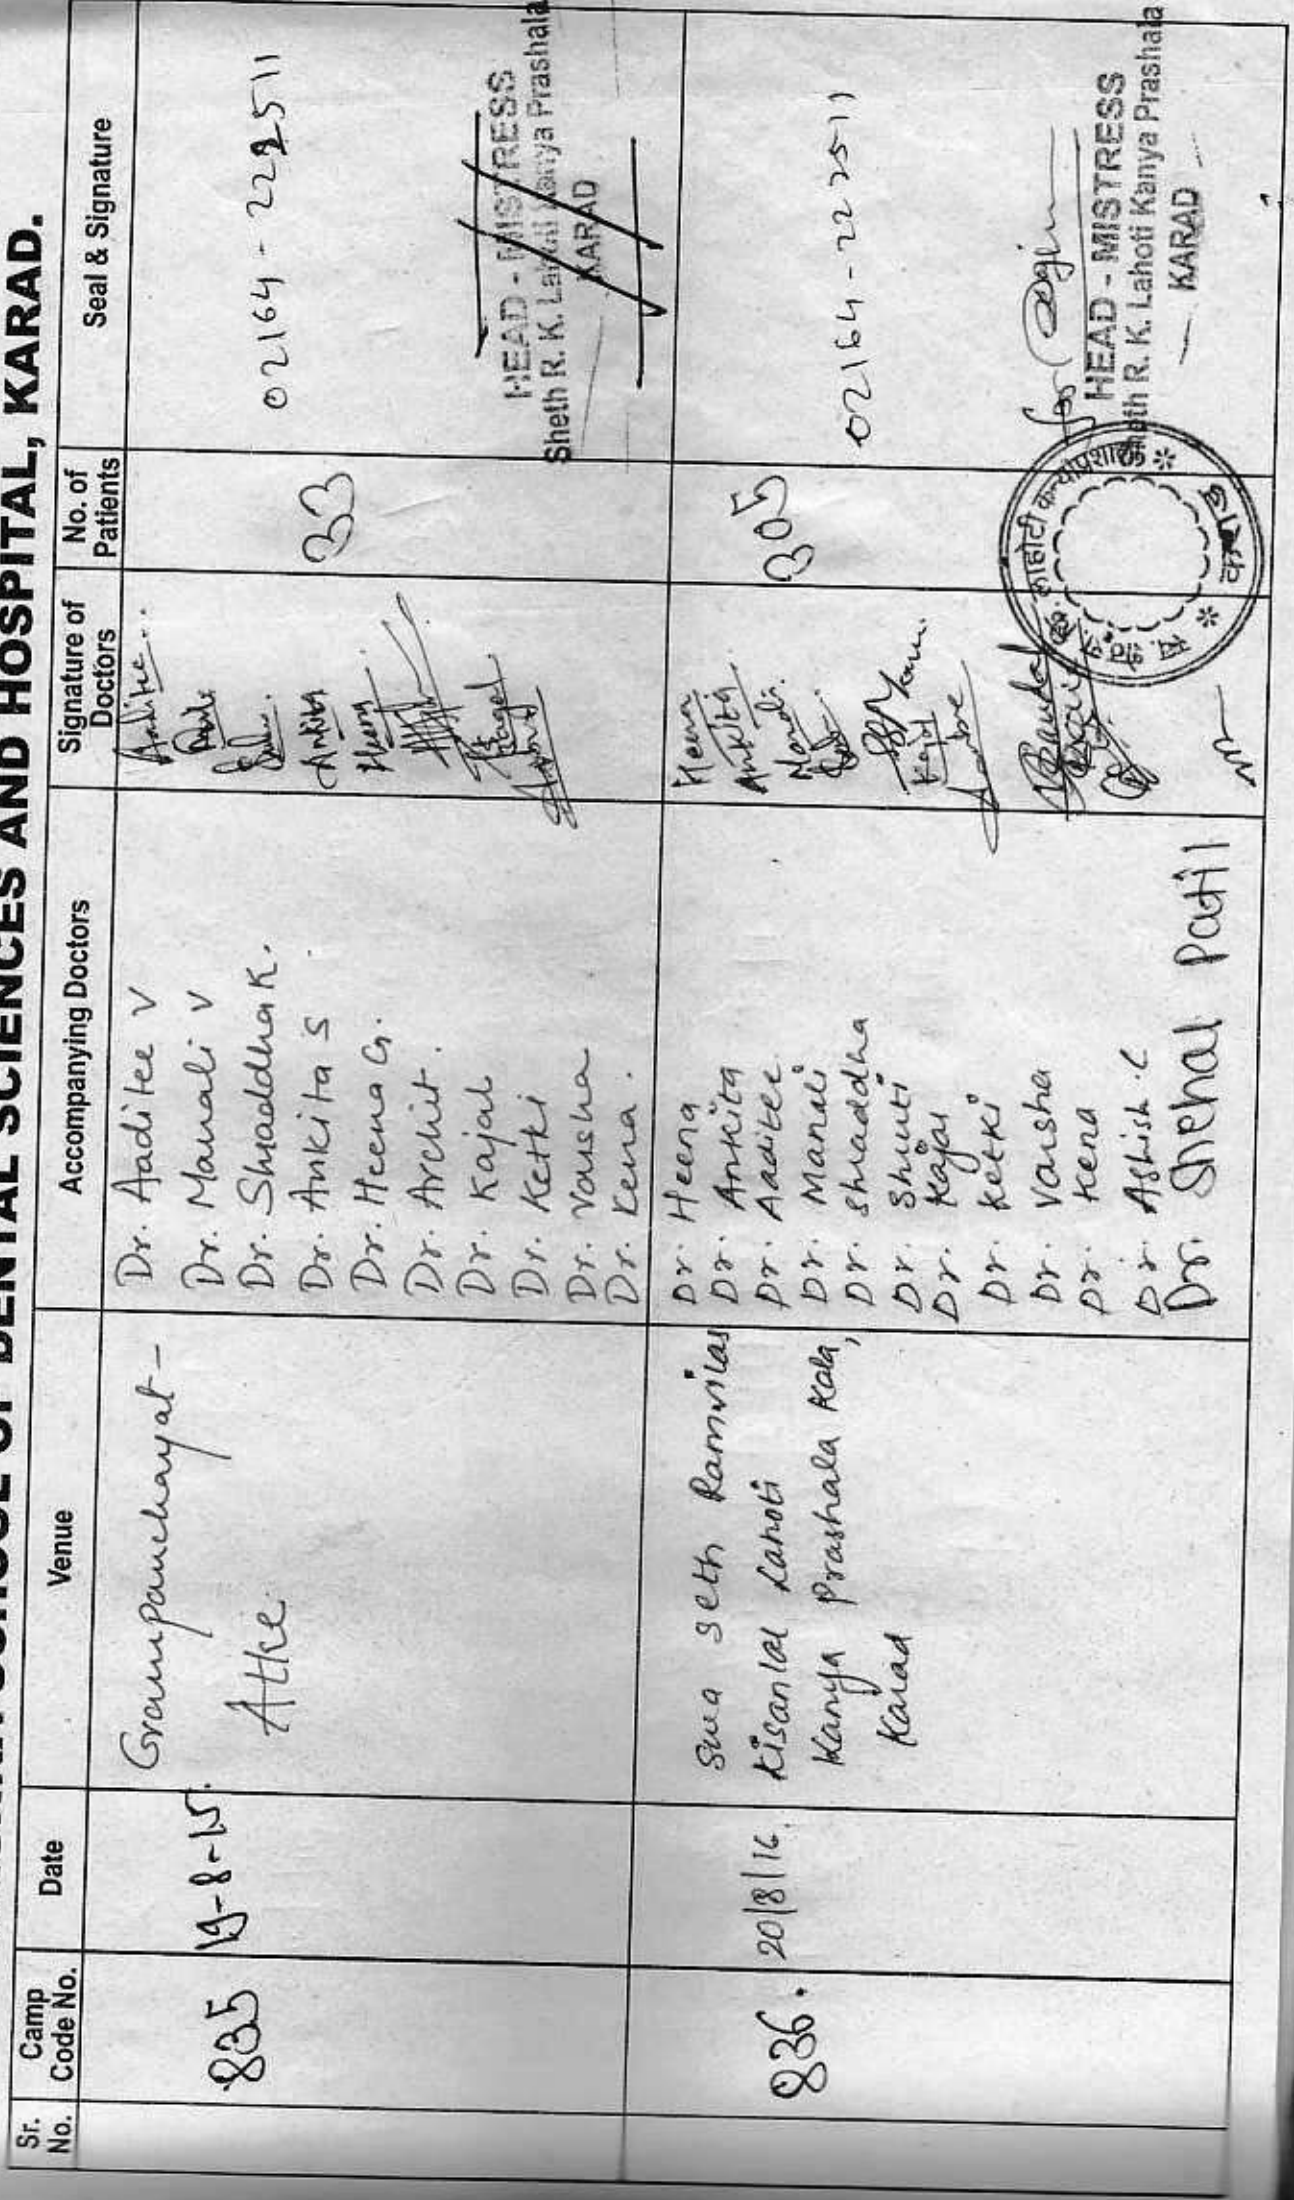 SCHOOL OF DENTAL SCIENCES AND HOSPITAL, KARAD.
Sr. No.
Camp Code No.
Date
Venue
Accompanying Doctors
Signature of Doctors
No. of Patients
Seal & Signature
835
19-8-15.
Grampanchayat -
Atke
Dr. Aaditee V
Dr. Manali V
Dr. Shraddha K.
Dr. Ankita S
Dr. Heena G.
Dr. Archit.
Dr. Kajal
Dr. Ketki
Dr. Varsha
Dr. Kena.
Aaditee
Ankita
Heena
33
02164-222511
HEAD - MISTRESS
Sheth R. K. Lahoti Kanya Prashala
KARAD
836.
20/8/16.
Seth Ramvilas
Kisanlal Lahoti
Kanya Prashala Kala,
Karad
Dr. Heena
Dr. Ankita
Dr. Aaditee
Dr. Manali
Dr. Shraddha
Dr. Shruti
Dr. Kajal
Dr. Ketki
Dr. Varsha
Dr. Kena
Dr. Ashish.C
Dr. Snehal Patil
Heena
Ankita
Manali.
Kajal
305
02164-222511
for
HEAD - MISTRESS
Sheth R. K. Lahoti Kanya Prashala
KARAD
लाहोटी कन्याप्रशाला
कराड